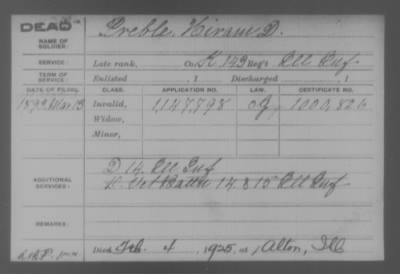 DEAD
NAME OF SOLDIER: Preble, Hiram D.
SERVICE: Late rank, Co. K 143 Reg't Ill Inf.
TERM OF SERVICE: Enlisted , 1 Discharged , 1
DATE OF FILING. CLASS. APPLICATION NO. LAW. CERTIFICATE NO.
1893 Mar 13 Invalid, 1,147,798 1000,826
Widow,
Minor,
D 14. Ill Inf
ADDITIONAL SERVICES: 14 & 15 Ill Inf
REMARKS:
Died Feb. 4, 1925, at Alton, Ill